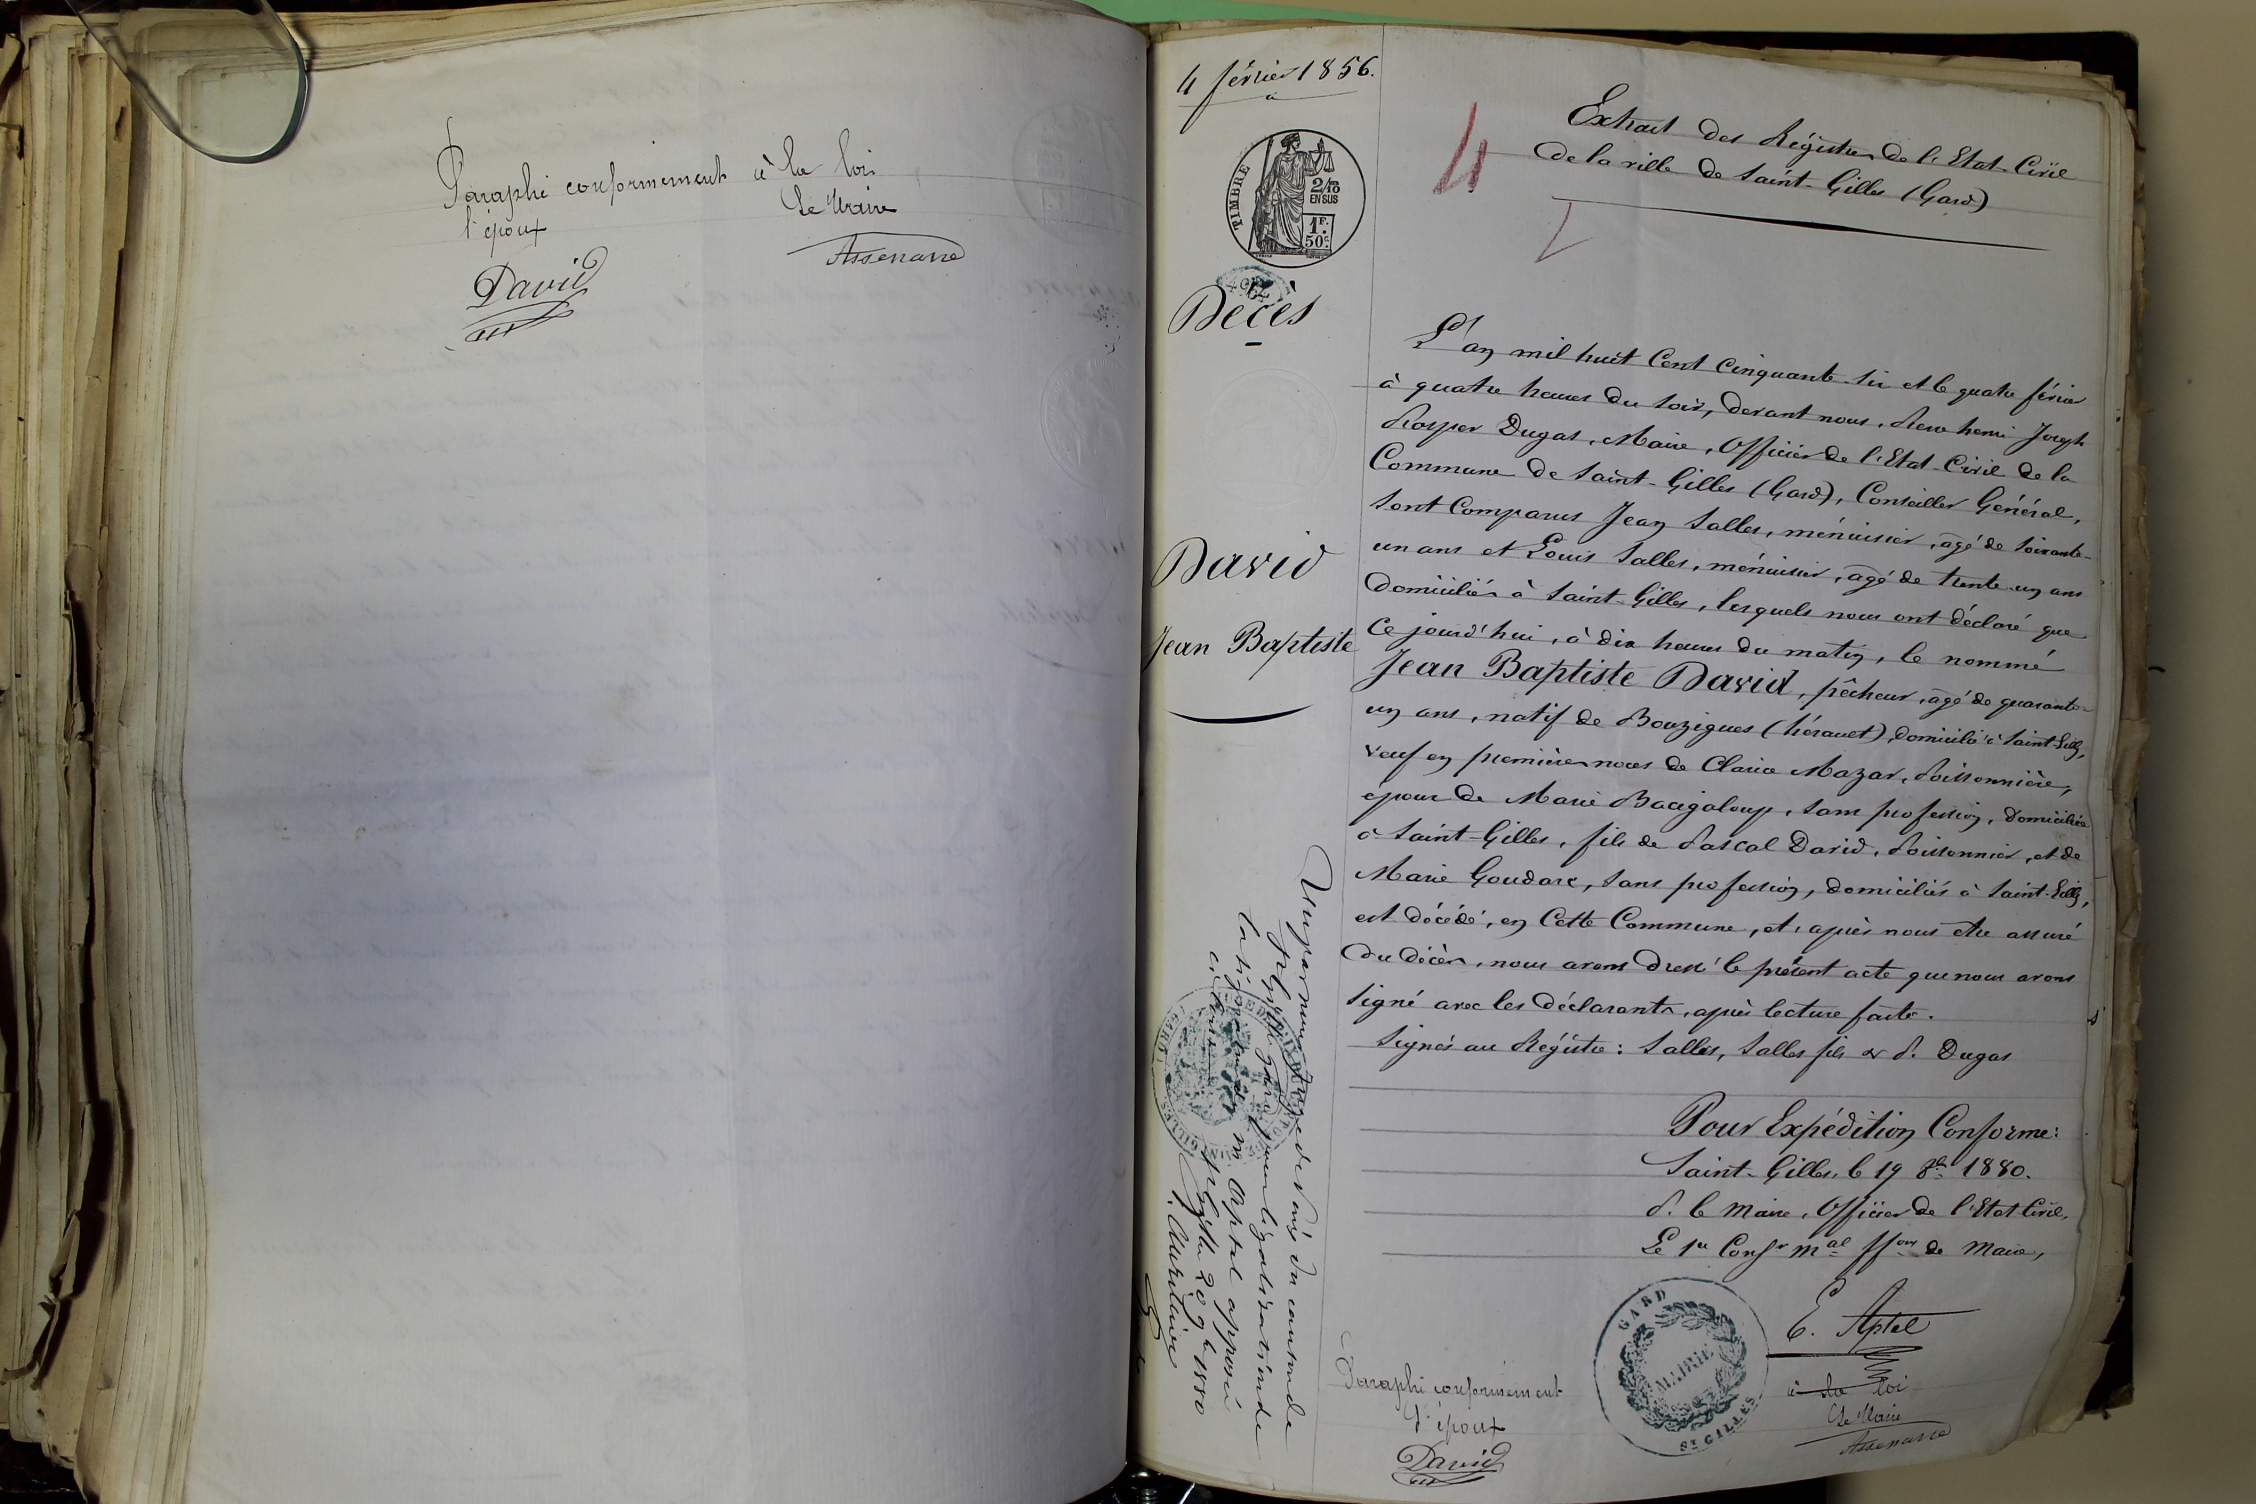 Paraphé conformément à la loi
l'époux
Le Maire
David
Assenarre
4 février 1856.
TIMBRE
2/10
EN SUS
1F.
50c
Décès
David
Jean Baptiste
4
Extrait des Régistres de l'Etat-Civil
de la ville de Saint-Gilles (Gard)
L'an mil huit Cent Cinquante-Six et le quatre février
à quatre heures du soir, devant nous, henri Joseph
Prosper Dugas, Maire, Officier de l'Etat-Civil de la
Commune de Saint-Gilles (Gard), Conseiller Général,
sont Comparus Jean Salles, ménuisier, agé de soixante-
un ans et Louis Salles, ménuisier, agé de trente-un ans
domiciliés à Saint-Gilles, lesquels nous ont déclaré que
Ce jourd'hui, à dix heures du matin, le nommé
Jean Baptiste David, pêcheur, agé de quarante-
un ans, natif de Bouzigues (hérault), domicilié à Saint-Gilles,
veuf en premières noces de Clarice Mazar, Poissonnière,
époux de Marie Bacigaloup, sans profession, domiciliée
à Saint-Gilles, fils de Pascal David, Poissonnier, et de
Marie Goudare, sans profession, domiciliés à Saint-Gilles,
est décédé, en Cette Commune, et, après nous être assuré
du décès, nous avons dressé le présent acte que nous avons
signé avec les déclarants, après lecture faite.
Signés au Régistre: Salles, Salles fils & P. Dugas
Pour Expédition Conforme:
Saint-Gilles, le 19 8bre 1880.
P. le Maire, Officier de l'Etat Civil,
Le 1er Conser mal ffons de Maire,
E. Aptel
GARD
MAIRIE
St GILLES
Paraphé conformément
à la loi
l'époux
Le Maire
David
Assenarre
Vu par nous Juge de Paix du canton de
St Gilles Gard pour légalisation de
la signature de M. Aptel apposée
ci contre
St Gilles 20 9bre 1880